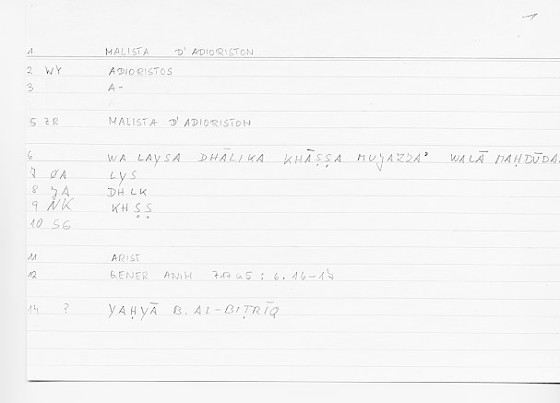 1
1 MALISTA D'ADIORISTON
2 WY ADIORISTOS
3 A-
5 ZR MALISTA D'ADIORISTON
6 WA LAYSA DHĀLIKA KHĀṢṢA MUYAZZAʾ WALĀ MAḤDŪDA
7 ØA LYS
8 YA DHLK
9 NK KHṢṢ
10 SG
11 ARIST
12 GENER ANIM 717a5 : 6. 16-17
14 ? YAḤYĀ B. AL-BIṬRĪQ